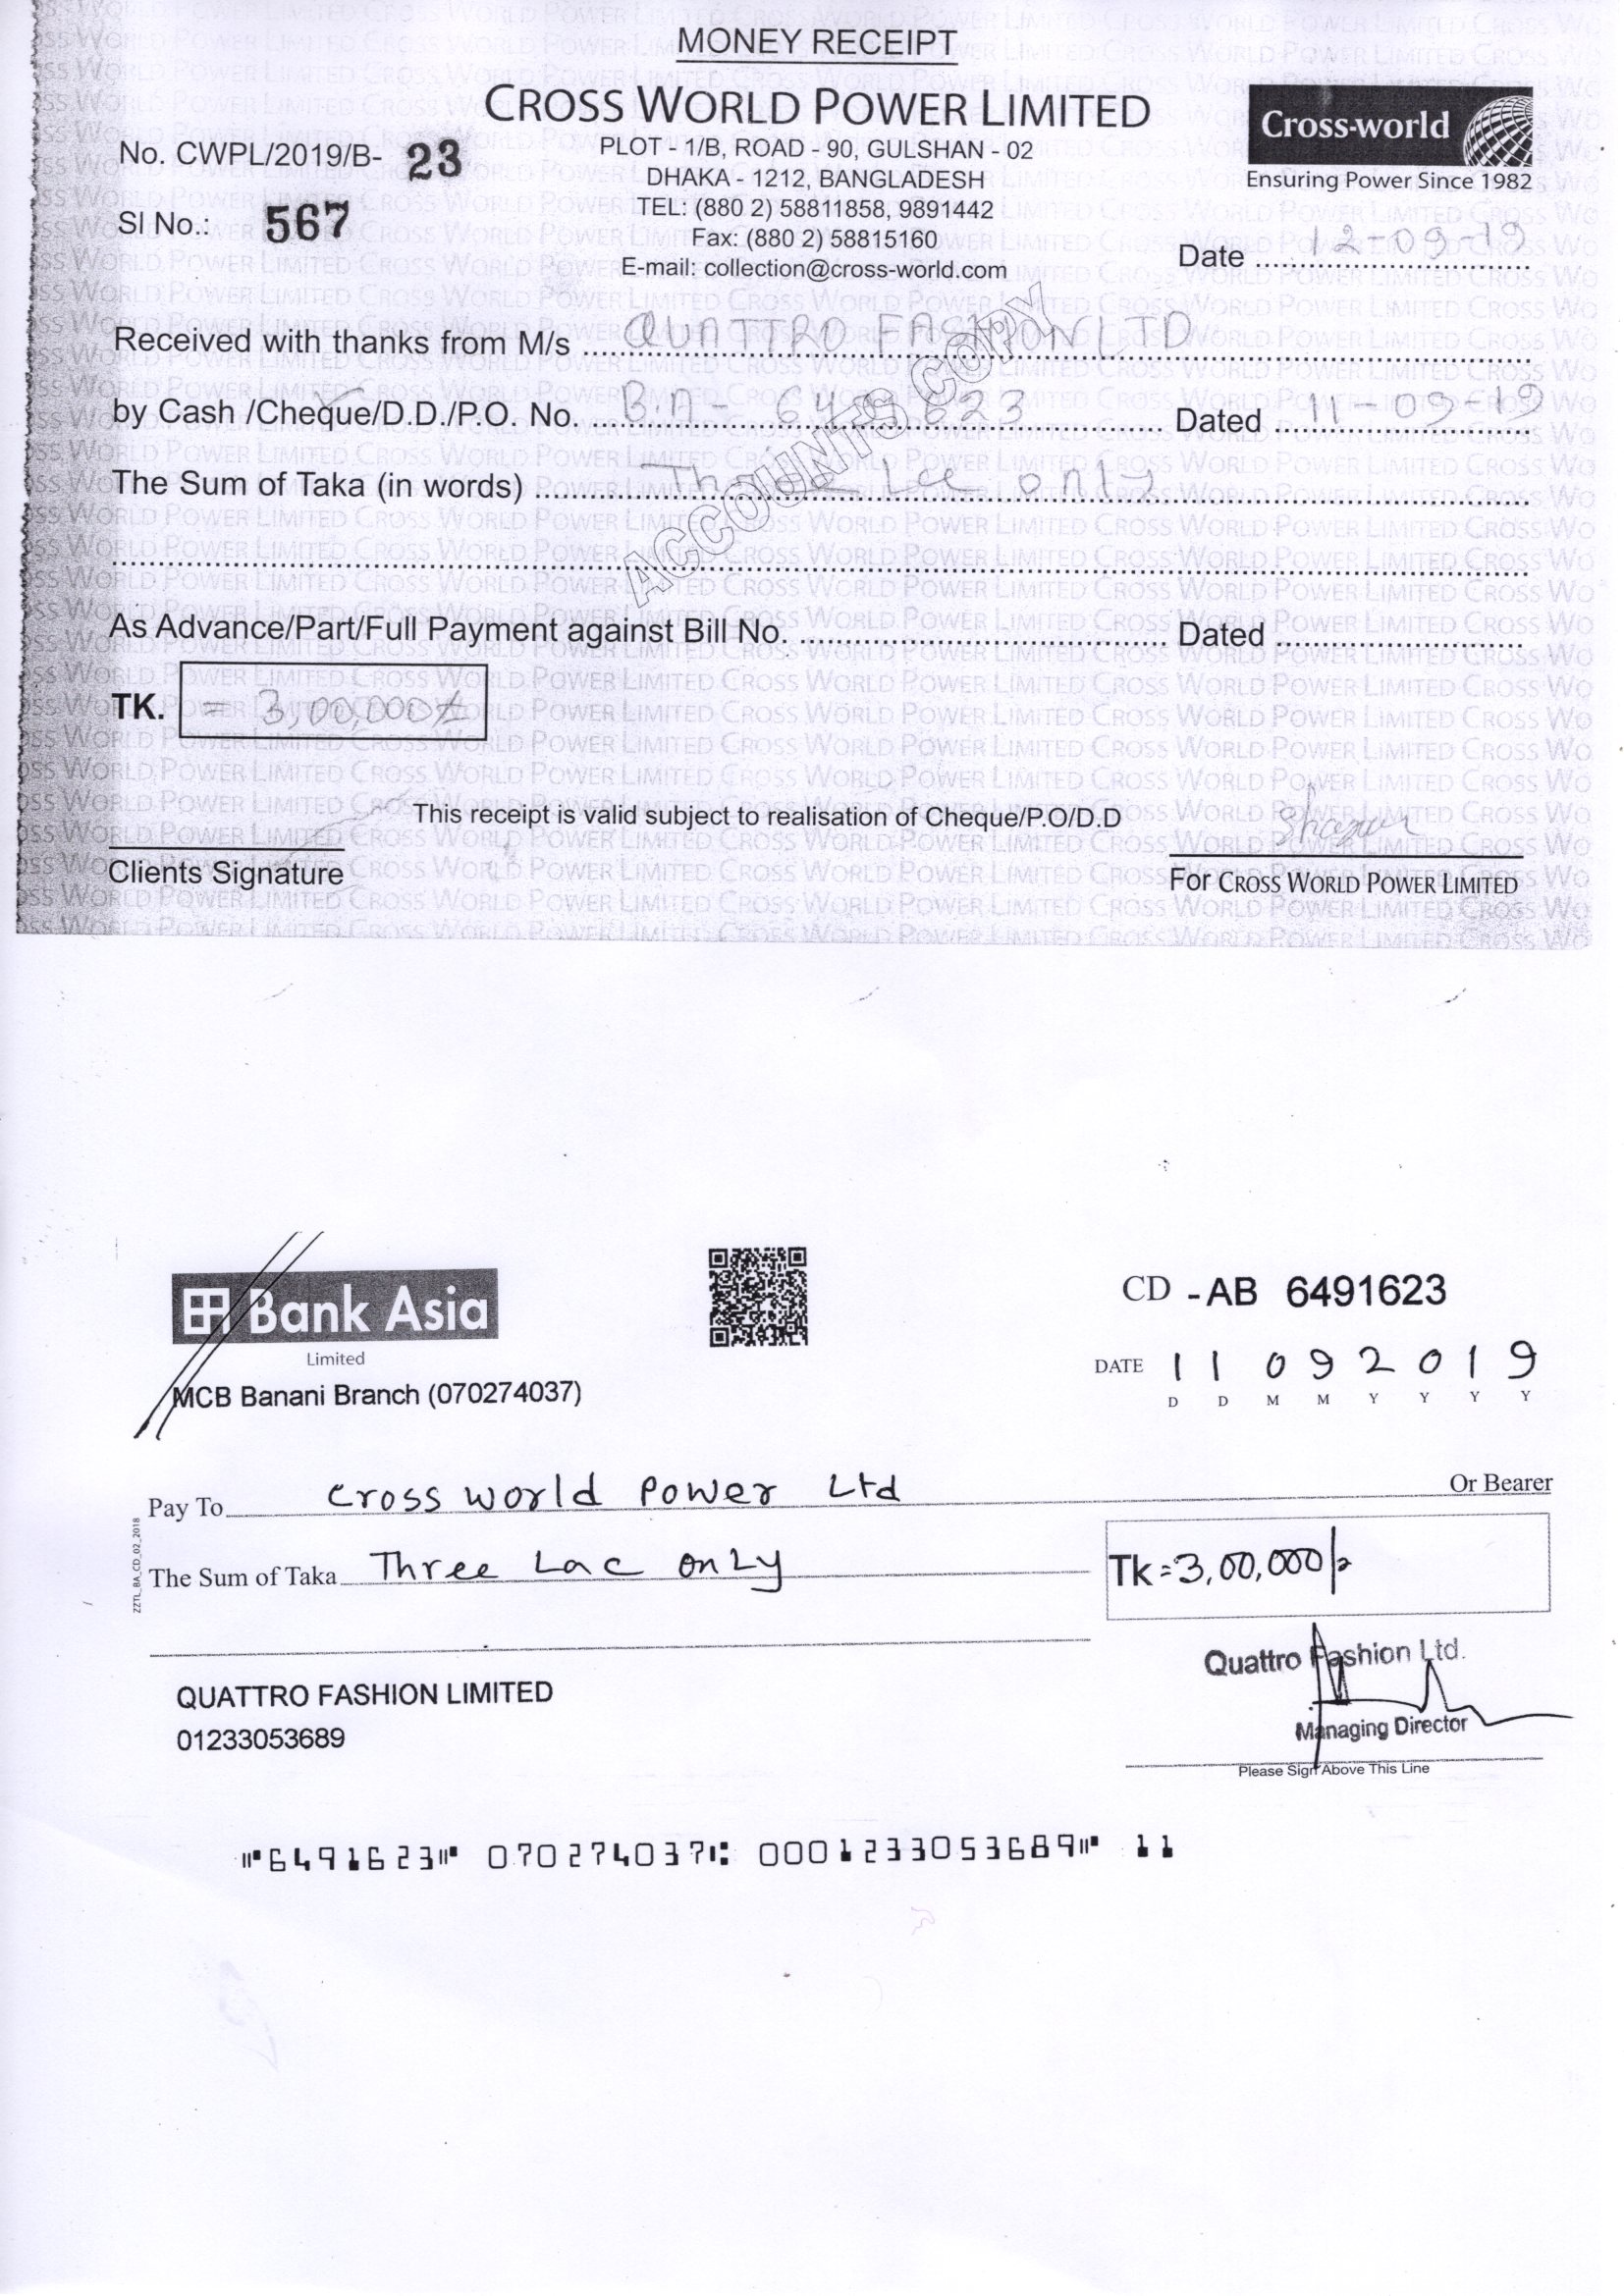 MONEY RECEIPT
CROSS WORLD POWER LIMITED
Cross-world
Ensuring Power Since 1982
No. CWPL/2019/B- 23
PLOT - 1/B, ROAD - 90, GULSHAN - 02
DHAKA - 1212, BANGLADESH
Sl No.: 567
TEL: (880 2) 58811858, 9891442
Fax: (880 2) 58815160
E-mail: collection@cross-world.com
Date 12-09-19
Received with thanks from M/s QUATTRO FASHION LTD
by Cash /Cheque/D.D./P.O. No. B.A- 6491623 Dated 11-09-19
The Sum of Taka (in words) Three Lac only
ACCOUNTS COPY
As Advance/Part/Full Payment against Bill No. Dated
TK. = 3,00,000/=
This receipt is valid subject to realisation of Cheque/P.O/D.D
Clients Signature
For CROSS WORLD POWER LIMITED
Bank Asia
Limited
MCB Banani Branch (070274037)
CD - AB 6491623
DATE 1 1 0 9 2 0 1 9
D D M M Y Y Y Y
Pay To Cross world Power Ltd Or Bearer
The Sum of Taka Three Lac only
Tk = 3,00,000/=
ZZTL_BA_CD_02_2018
QUATTRO FASHION LIMITED
01233053689
Quattro Fashion Ltd.
Managing Director
Please Sign Above This Line
⑈6491623⑈ 070274037⑆ 0001233053689⑈ 11